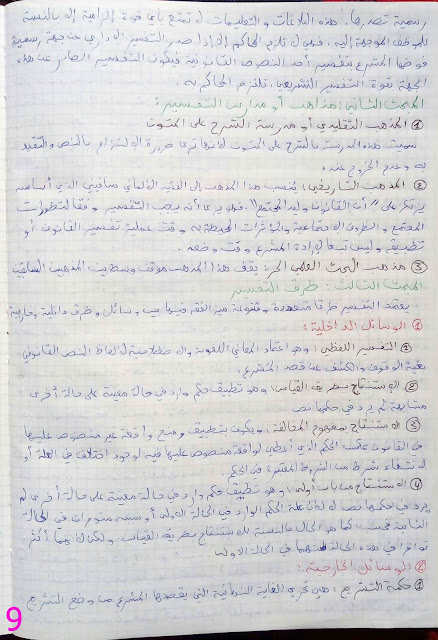 رسمية تصدرها. هذه البلاغات والتعليمات لا تتمتع بأية قوة إلزامية إلا بالنسبة
للموظف الموجهة إليه، فهي لا تلزم الحاكم إلا إذا صدر التفسير الإداري عن جهة رسمية
فوضها المشرع بتفسير أحد النصوص القانونية فيكون التفسير الصادر عن هذه
الجهة بقوة التفسير التشريعي، تلتزم المحاكم به.
المبحث الثاني: مذاهب أو مدارس التفسير:
1 المذهب التقليدي أو مدرسة الشرح على المتون
سميت هذه المدرسة بالشرح على المتون لأنها ترى ضرورة الالتزام بالنص والتقيد
به وعدم الخروج عنه.
2 المذهب التاريخي: ينسب هذا المذهب إلى الفقيه الألماني سافيني الذي أساسه
يرتكز على "أن القانون وليد المجتمع". فهو يرى أنه يجب التفسير وفقا لتطورات
المجتمع والظروف الاجتماعية والمؤثرات المحيطة به وقت عملية تفسير القانون أو
تطبيقه وليس تبعا لإرادة المشرع وقت وضعه.
3 مذهب البحث العلمي الحر: يقف هذا المذهب موقف وسط بين المذهبين السابقين
المبحث الثالث: طرق التفسير
يعتمد التفسير طرقا متعددة ومتنوعة ميز الفقه فيها بين وسائل وطرق داخلية وخارجية
1 الوسائل الداخلية:
1 التفسير اللفظي: وهو اعتماد المعاني اللغوية والاصطلاحية لألفاظ النص القانوني
بغية الوقوف والكشف عن قصد المشرع.
2 الاستنتاج بطريق القياس: وهو تطبيق حكم وارد في حالة معينة على حالة أخرى
مشابهة لم يرد في حكمها نص
3 الاستنتاج بمفهوم المخالفة: ويكون بتطبيق ومنح واقعة غير منصوص عليها
في القانون عكس الحكم الذي أعطى لواقعة منصوص عليها فيه لوجود اختلاف في العلة أو
لانتفاء شرط من الشروط المعتبرة في الحكم.
4 الاستنتاج من باب أولى: وهو تطبيق حكم وارد في حالة معينة على حالة أخرى لم
يرد في حكمها نص لا لأن علة الحكم الوارد في الحالة الأولى أو سببه متوفران في الحالة
الثانية فحسب كما هو الحال بالنسبة للاستنتاج بطريق القياس. ولكن لأنهما أكثر
توافرا في هذه الحالة منهما في الحالة الأولى.
2 الوسائل الخارجية:
1 حكمة التشريع: هي تحري الغاية النهائية التي يقصدها المشرع من وضع التشريع
9